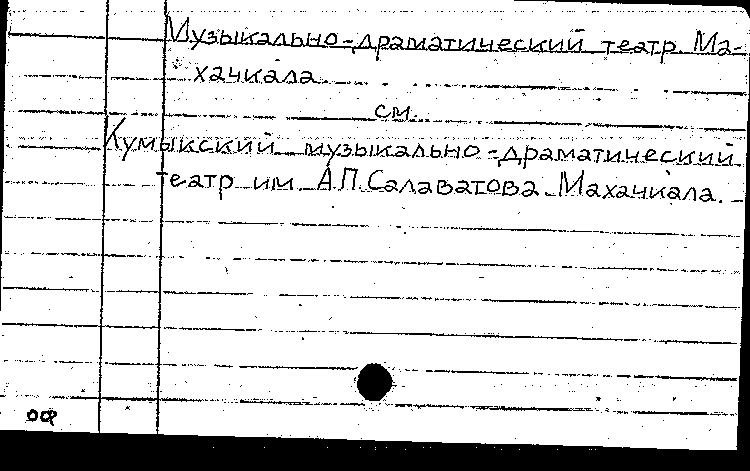 Музыкально-драматический театр. Ма-
хачкала.
см.
Кумыкский музыкально-драматический
театр им. А.П. Салаватова. Махачкала.
ОФ